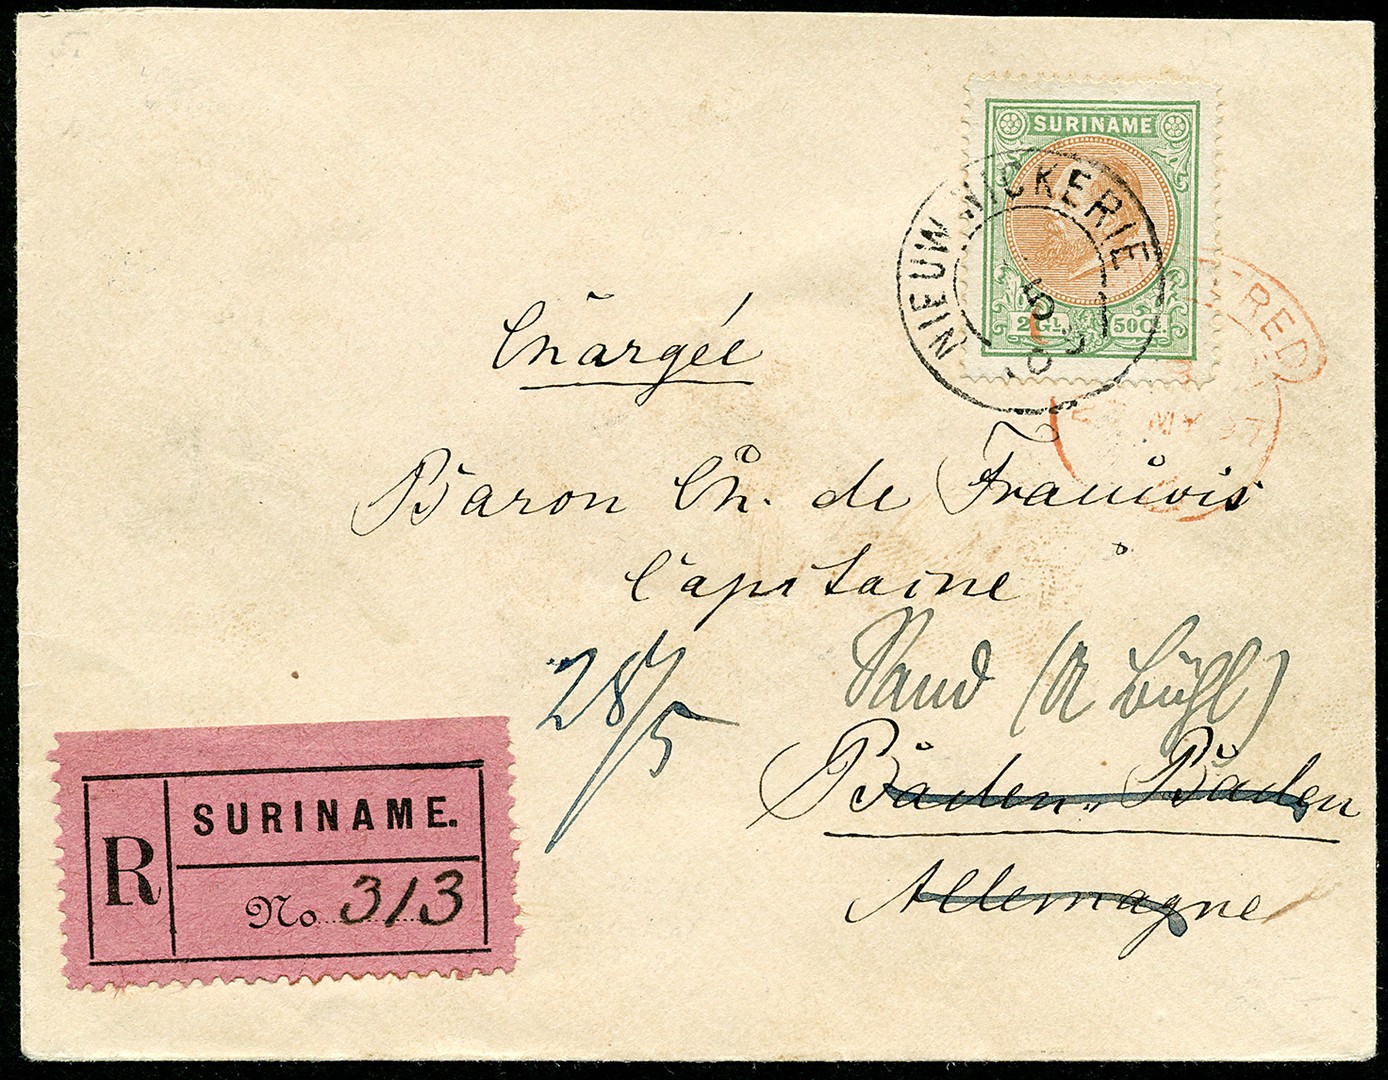 SURINAME
2 Gl. 50 Ct.
NIEUW NICKERIE
RED
MY 97
Chargée
Baron Ch. de
Capitaine
28/5
Sand (A Bühl)
Baden-Baden
Allemagne
R
SURINAME.
No. 313